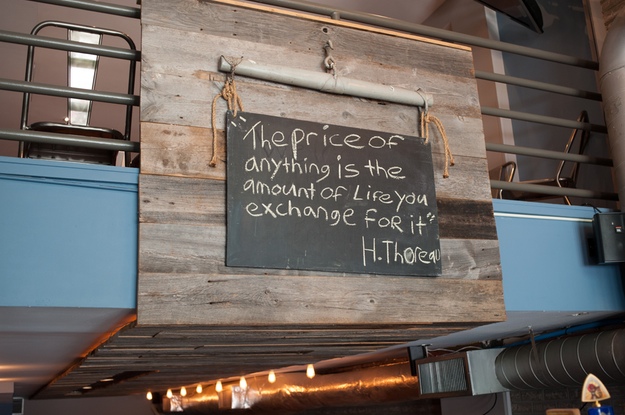 "The price of
anything is the
amount of Life you
exchange FoR it"
H.Thoreau